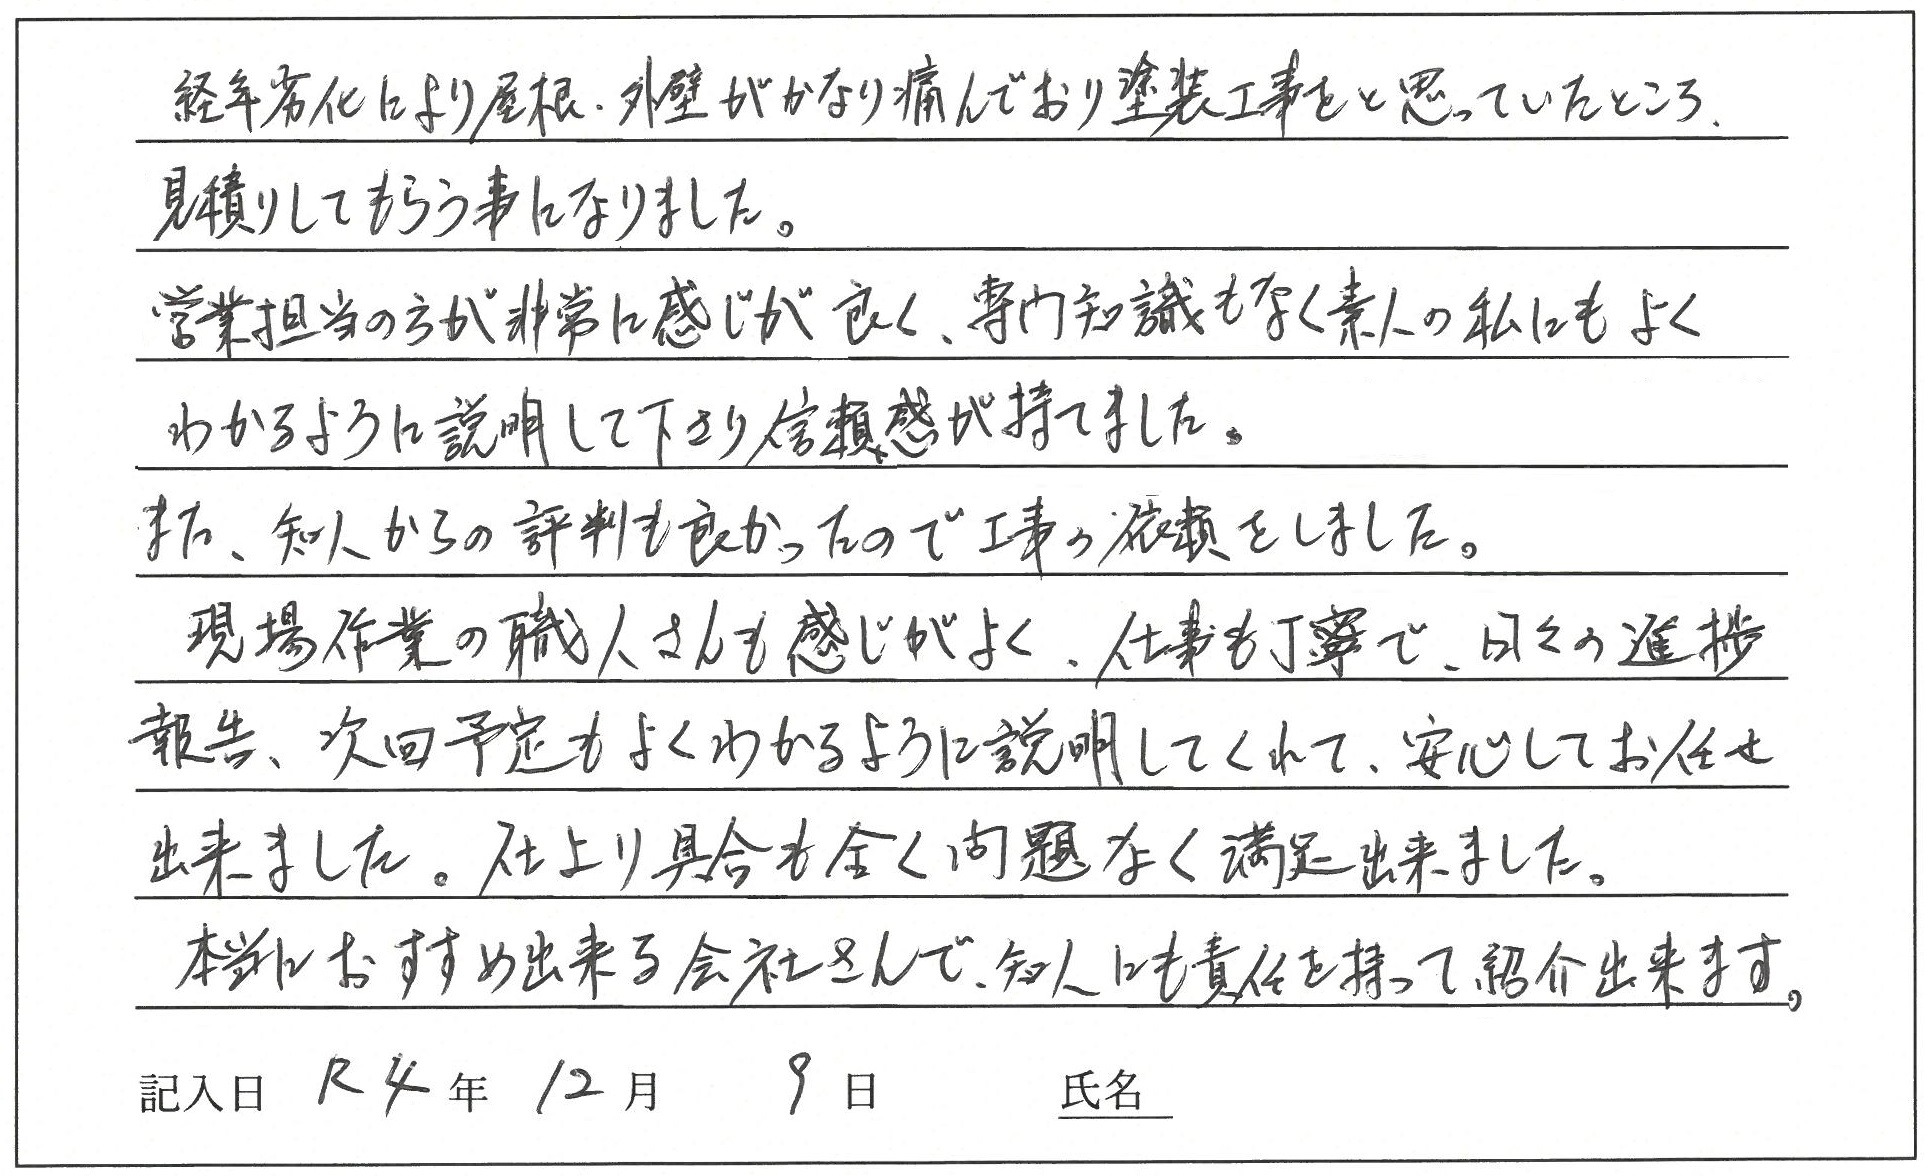 経年劣化により屋根・外壁がかなり痛んでおり塗装工事をと思っていたところ、
見積りしてもらう事になりました。
営業担当の方が非常に感じが良く、専門知識もなく素人の私にもよく
わかるように説明して下さり信頼感が持てました。
また、知人からの評判も良かったので工事の依頼をしました。
現場作業の職人さんも感じがよく、仕事も丁寧で、日々の進捗
報告、次回予定もよくわかるように説明してくれて、安心してお任せ
出来ました。仕上り具合も全く問題なく満足出来ました。
本当におすすめ出来る会社さんで、知人にも責任を持って紹介出来ます。
記入日 R4年 12月 9日 氏名